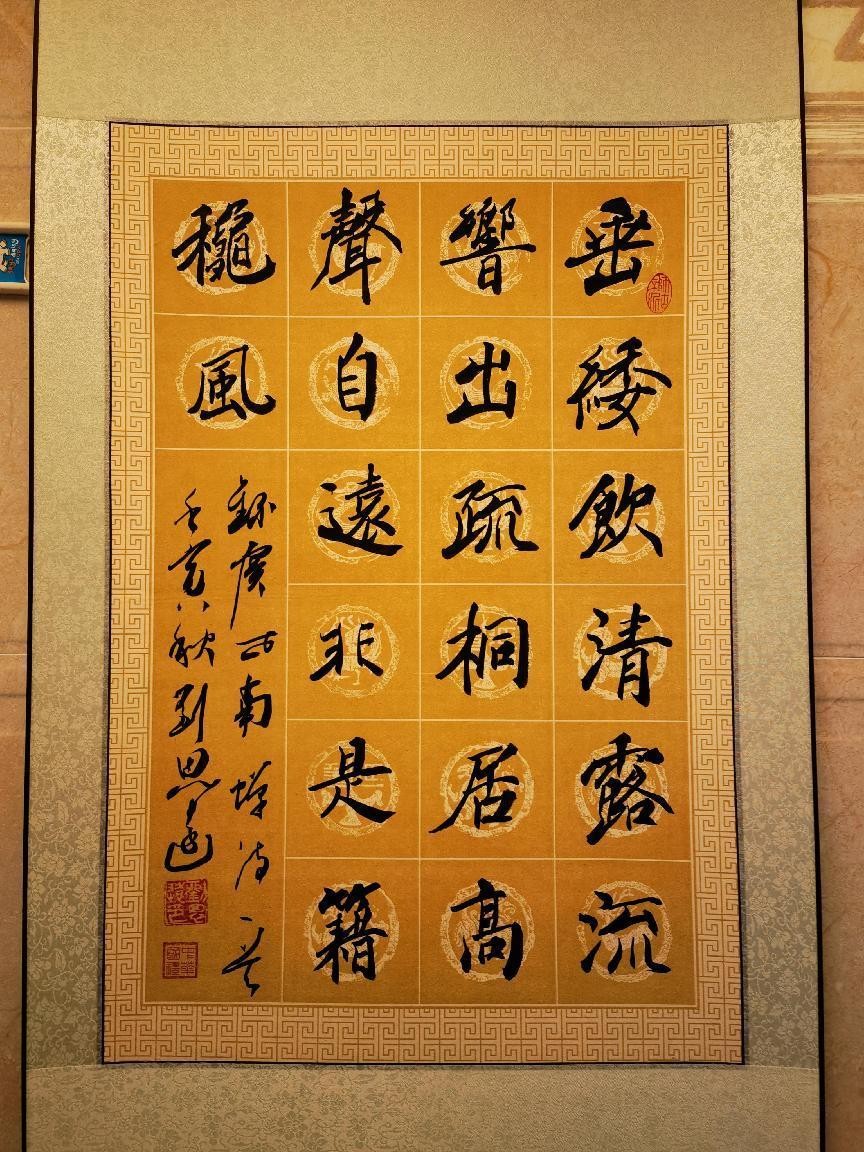 垂緌飲清露流
響出疏桐居高
聲自遠非是籍
穐風
錄虞世南蟬诗一首
壬寅秋刘思